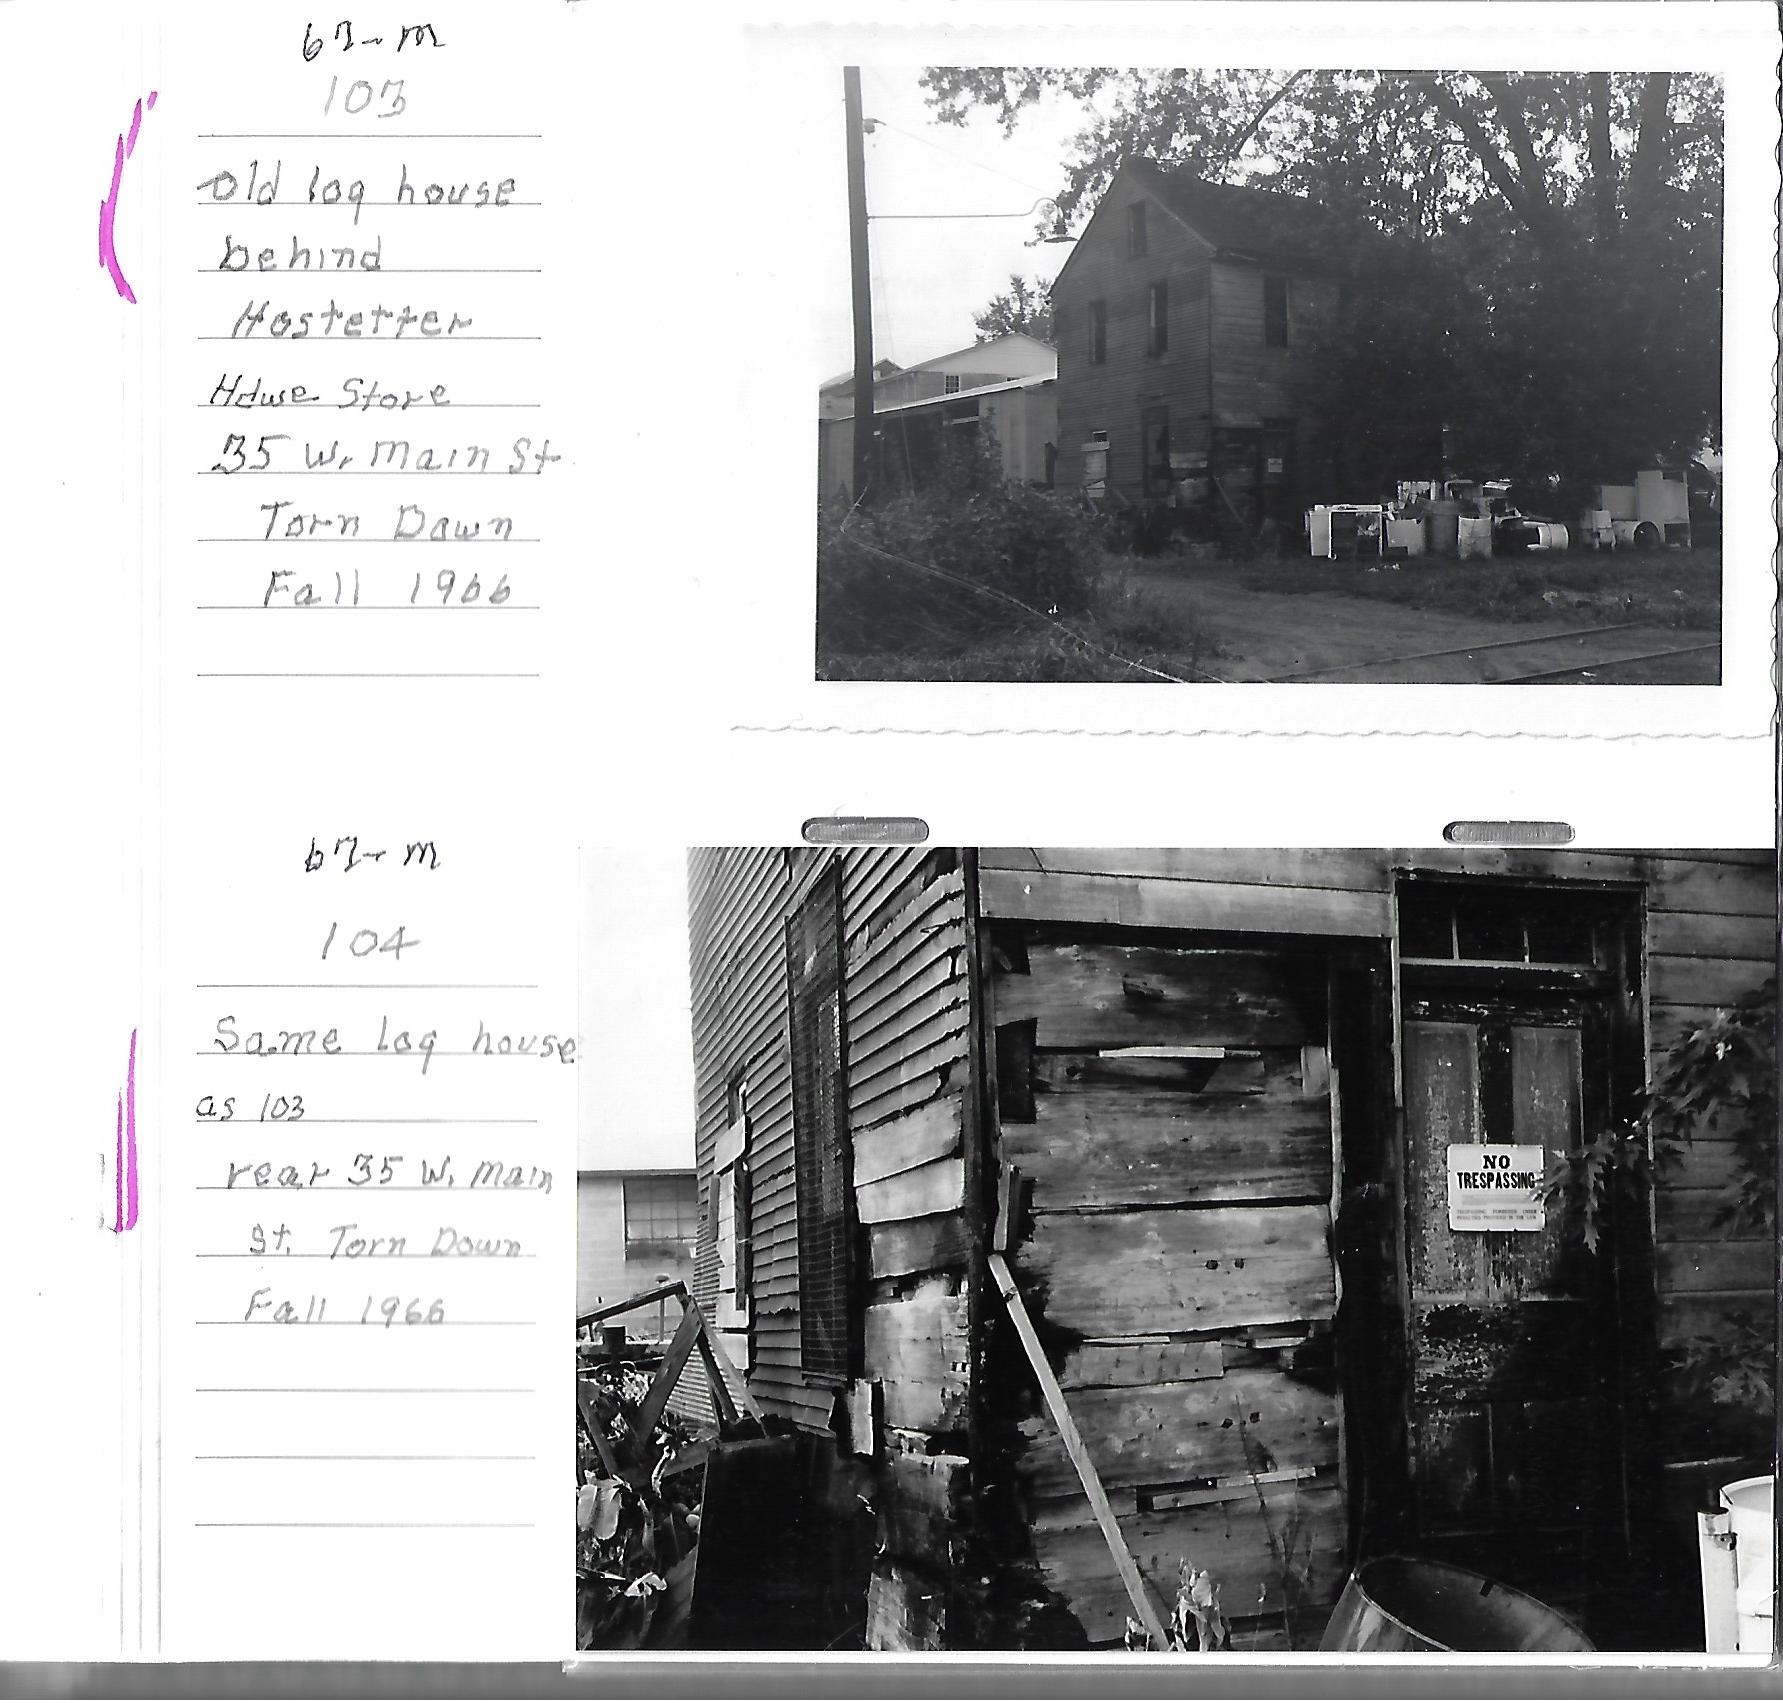 67-M
103
old log house
behind
Hostetter
Hdwe Store
35 W. Main St
Torn Down
Fall 1966
67-M
104
Same log house
as 103
rear 35 W. Main
St. Torn Down
Fall 1966
NO
TRESPASSING